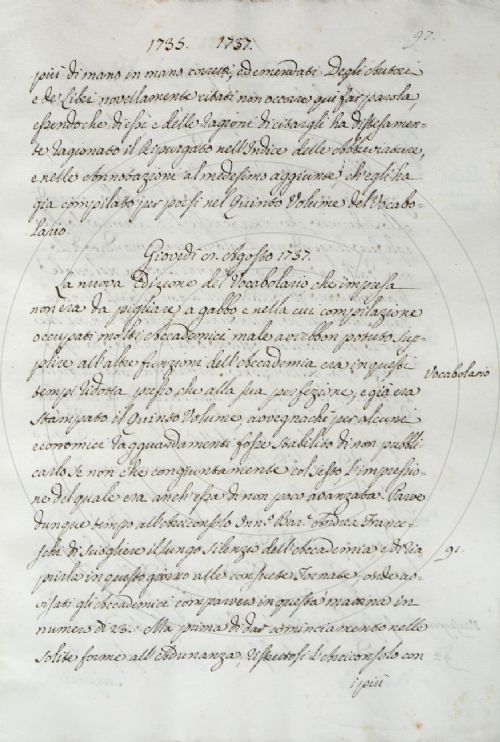 1735. 1737. 97.
più di mano in mano corretti, ed emendati. Degli Autori
e de' Libri novellamente citati non occorre qui far parola,
essendochè di essi e delle ragioni di citargli ha distesamen-
te ragionato il Ripurgato nell'Indice delle Abbreviature,
e nelle Annotazioni al medesimo aggiunte, ch'egli ha
già compilato per porsi nel Quinto Volume del Vocabo-
lario.
Giovedì Agosto 1737.
La nuova Edizione del Vocabolario che impresa
non era da pigliare a gabbo e nella cui compilazione
occupati molti Accademici male avrebbon potuto sup-
plire all'altre funzioni dell'Accademia, era in questi
tempi ridotta presso che alla sua perfezione, e già era
Vocabolario
stampato il Quinto Volume avvegnachè per alcuni
economici ragguardamenti fosse stabilito di non pubbli-
carlo se non che congiuntamente col Sesto l'impressio-
ne del quale era anch'essa di non poco avanzata. Parve
dunque tempo all'Arciconsolo Inn.º Bar.º Andrea France-
schi di sciogliere il lungo silenzio dell'Accademia e di ria
91.
prirla in questo giorno alle consuete Tornate, onde av-
visati gli Accademici comparvero in questa mattina in
numero di 23. Ma prima di dar cominciamento nelle
solite forme all'Adunanza, ristrettosi l'Arciconsolo con
i più